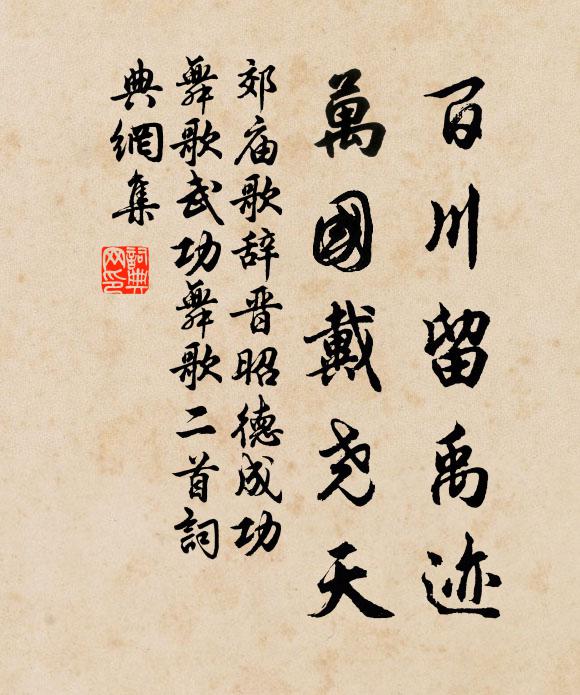 百川留禹迹
萬國戴尧天
郊庙歌辞晋昭德成功
舞歌武功舞歌二首詞
典網集
詞典网印